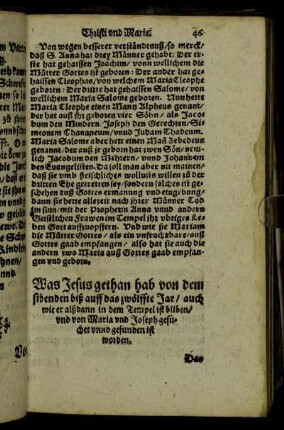 Christi vnd Marie. 46
Von wegen besserer verständtnuß/ so merckt/
daß S. Anna hat drey Männer gehabt: Der er-
ste hat gehaissen Joachim/ vonn wellichem die
Mütter Gottes ist geboren: Der ander hat ge-
haissen Cleophas/ von welchem Maria Cleophe
geboren: Der dritte hat gehaissen Salome/ von
wellichem Maria Salome geboren. Nun hette
Maria Cleophe einen Mann Alpheus genant/
der hat auß ihr geborn vier Söhn/ als Jacob
bum den Mindern/ Joseph den Gerechten/ Si-
monem Chananeum/ vnnd Judam Thadeum.
Maria Salome aber hett einen Mañ Zebedeus
genannt/ der auß jr geborn hat zwen Sön/ nem-
lich Jacobum den Mehrern/ vnnd Johannem
den Euangelisten. Da soll man aber nit mainen/
daß sie vmb fleischliches wollusts willen zu der
dritten Ehe getretten sey/ sondern solches ist ge-
schehen auß Gottes ermanung vnd eingebung/
dann sie hette alleinn nach ihrer Männer Tod
im sinn/ mit der Prophetin Anna vnnd andern
Geistlichen Frawen im Tempel ihr vbriges Le-
ben Gott auffzuopffern. Vnd wie sie Mariam
die Mütter Gottes/ als ein vnfruchtbare/ auß
Gottes gaab empfangen/ also hat sie auch die
andern zwo Maria auß Gottes gaab empfan-
gen vnd geborn.
Was Jesus gethan hab von dem
sibenden biß auff das zwölffte Jar/ auch
wie er alßdann in dem Tempel ist bliben/
vnd von Maria vnd Joseph gesu-
chet vnnd gefunden ist
worden.
Das